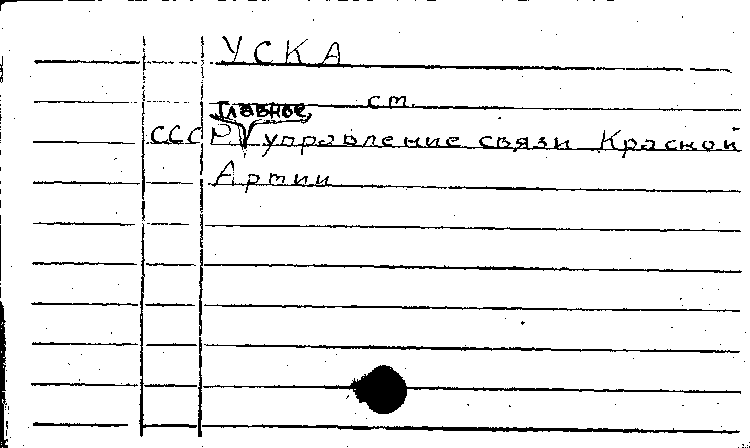 УСКА
ст.
Главное
СССР управление связи Красной
Артии